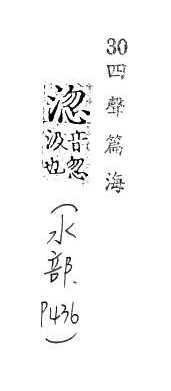 30 四聲篇海
淴
音忽
汲也
(水部. P436)